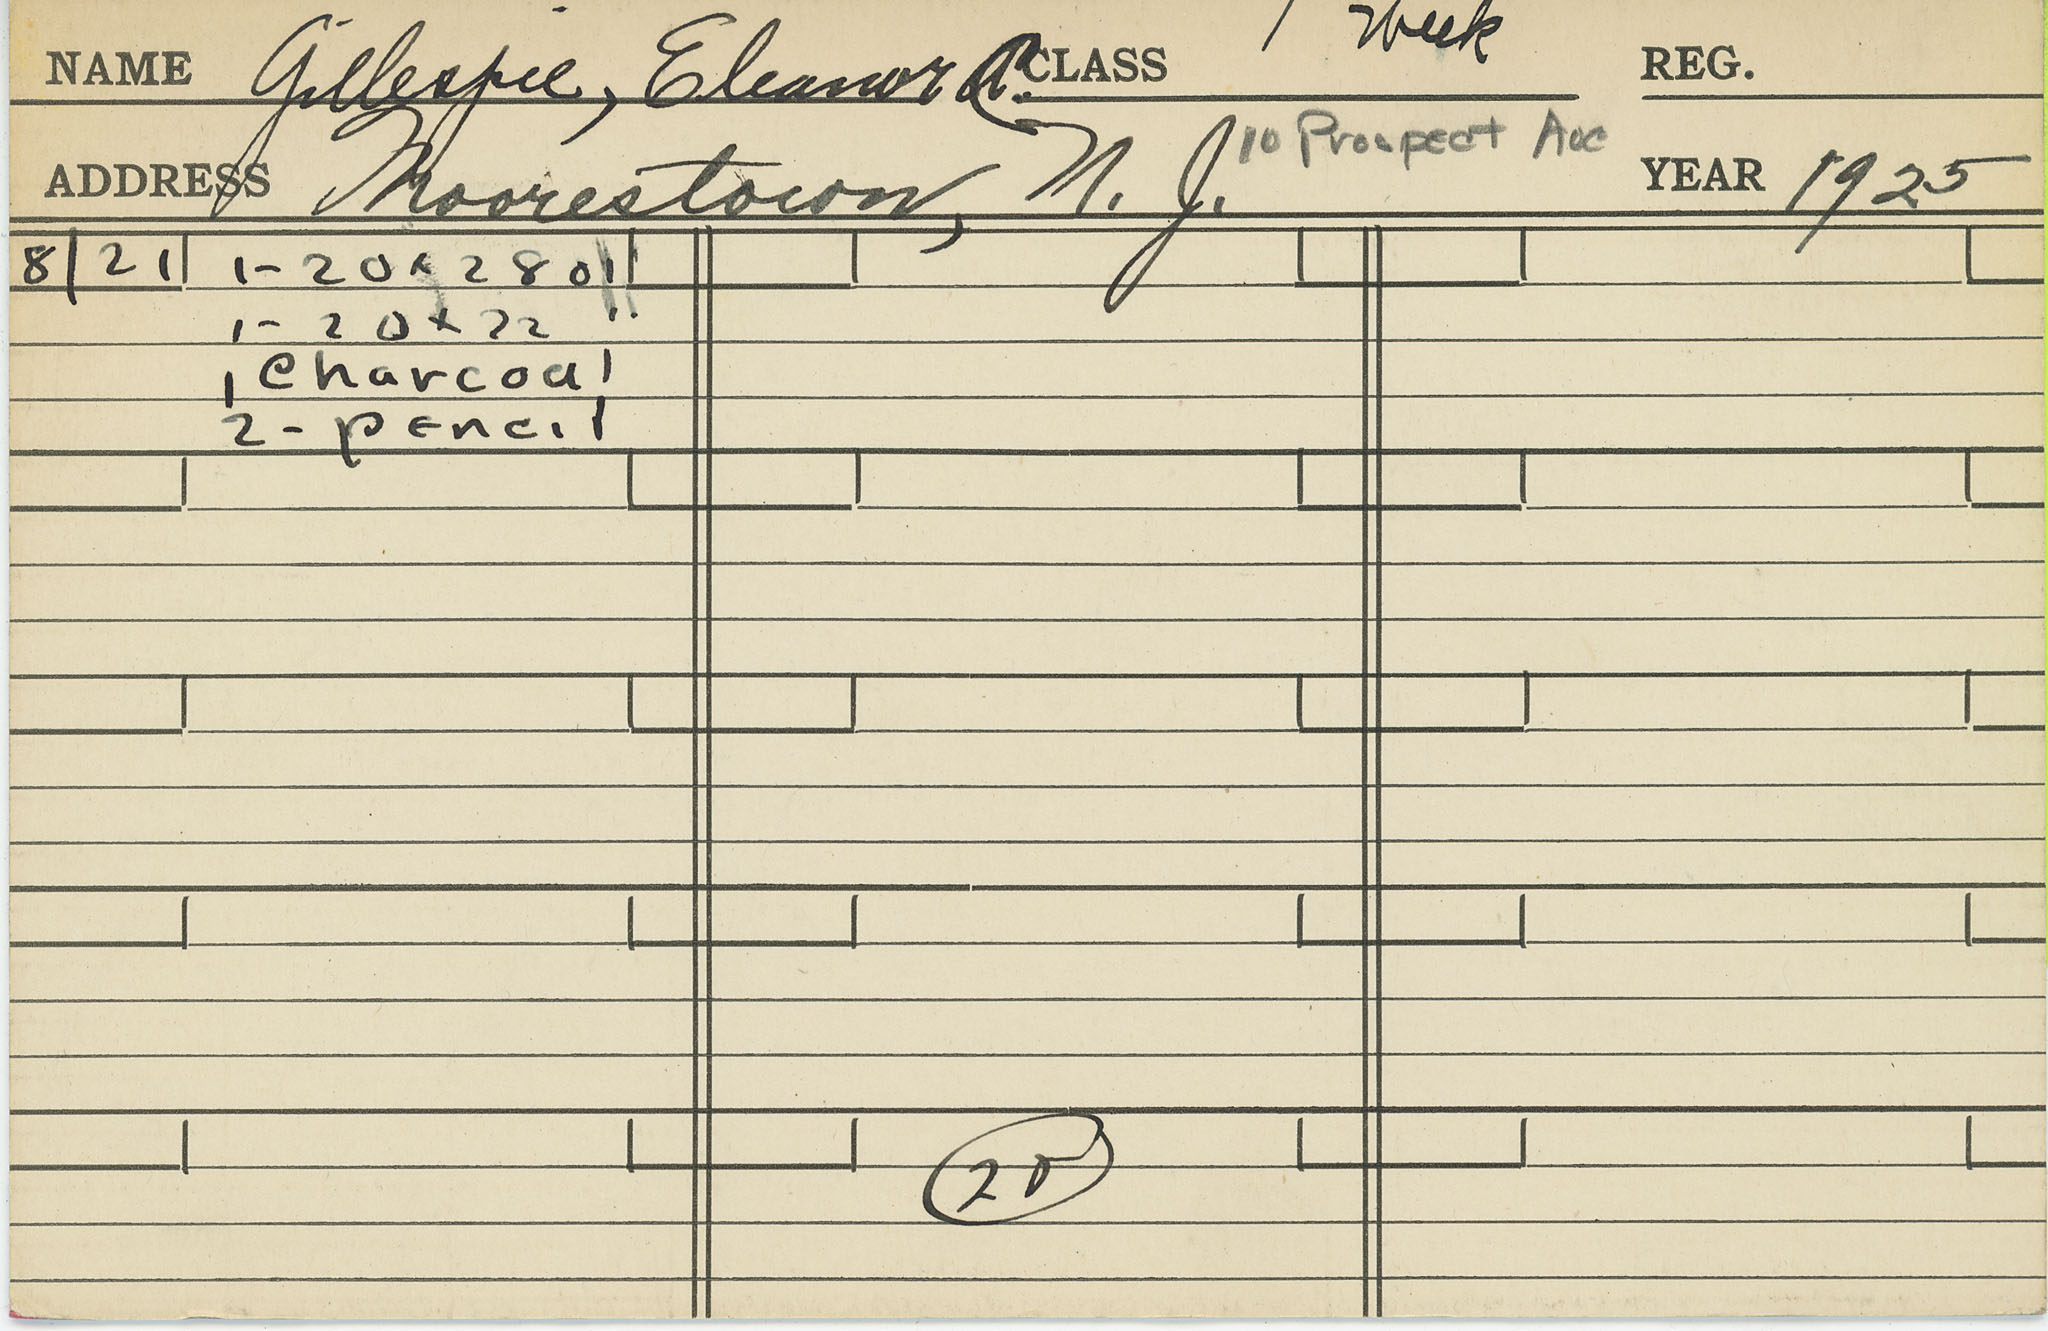 NAME Gillespie, Eleanor R. CLASS 1 Week REG.
ADDRESS Moorestown, N. J. 10 Prospect Ave YEAR 1925
8/21 1- 20 x 28 oil
1- 20 x 22 "
1 Charcoal
2- pencil
20